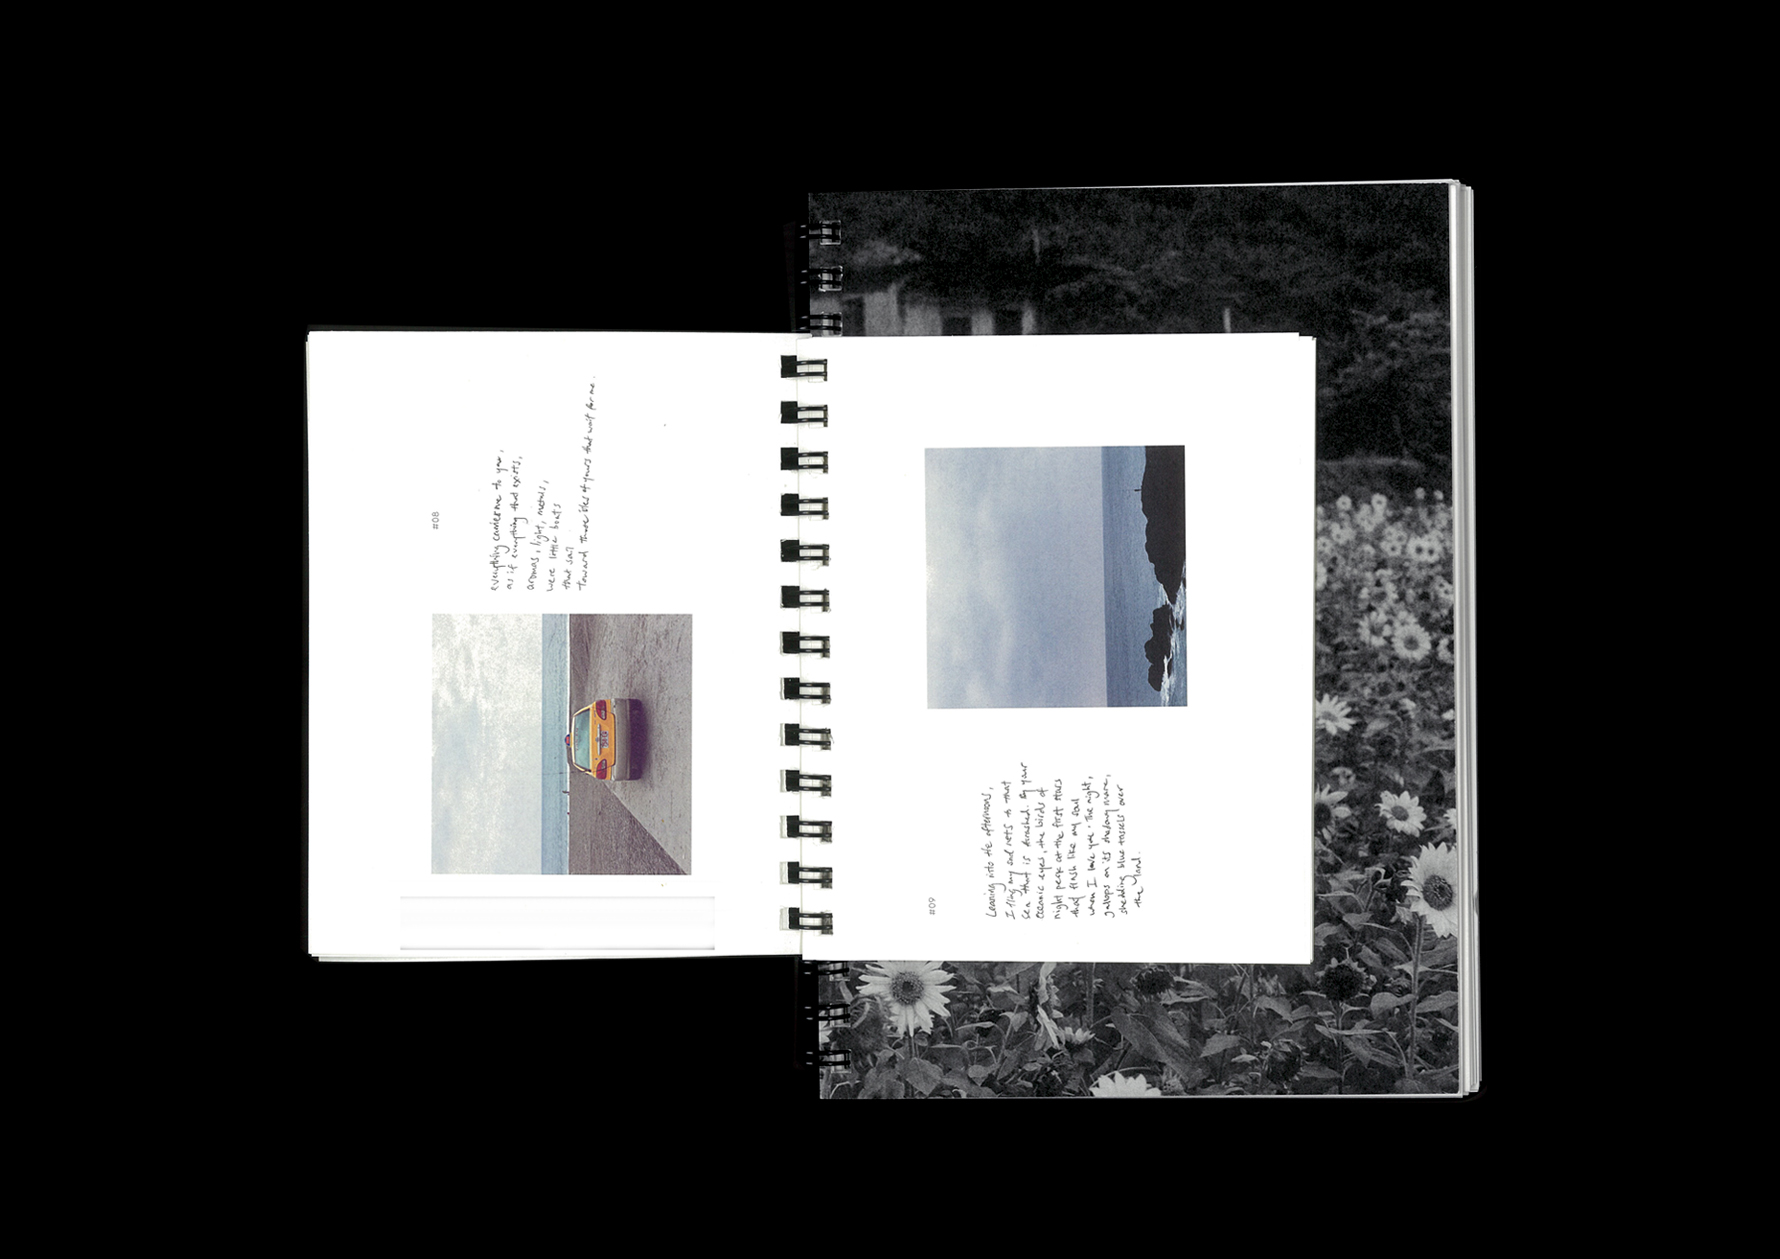 #08
everything carries me to you,
as if everything that exists,
aromas, light, metals,
were little boats
that sail
toward those isles of yours that wait for me.
#09
Leaning into the afternoons,
I fling my sad nets to that
sea that is thrashed. By your
oceanic eyes, the birds of
night peck at the first stars
that flash like my soul
when I love you. The night,
gallops on its shadowy mare,
shedding blue tassels over
the land.